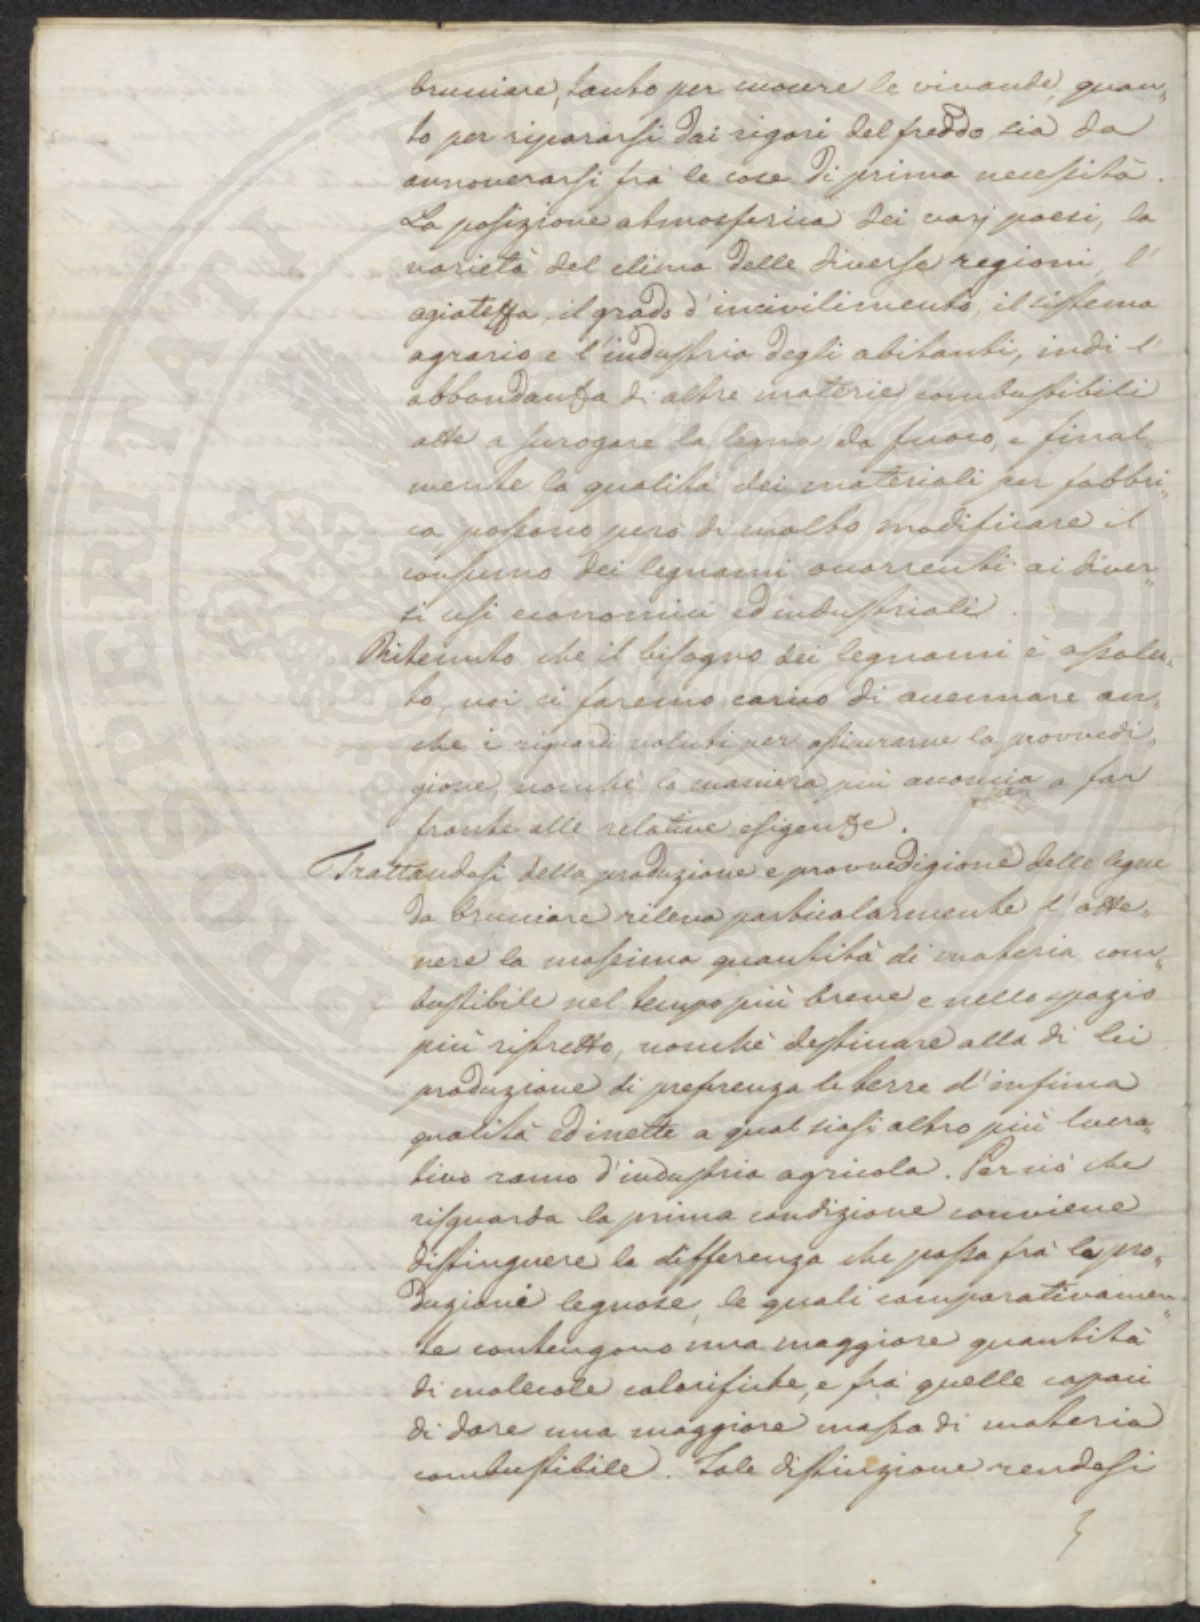 bruciare, tanto per cuocere le vivande, quan„
to per ripararsi dai rigori del freddo, sia da
annoverarsi frà le cose di prima necessità.
La posizione atmosferica dei varj paesi, la
varietà del clima delle diverse regioni, l'
agiatezza, il grado d'incivilimento, il sistema
agrario e l'industria degli abitanti, indi l'
abbondanza di altre materie combustibili
atte a surogare la legna da fuoco, e final„
mente la qualità dei materiali per fabbri„
ca possono però di molto modificare il
consumo dei legnami occorrenti ai diver„
si usi economici ed industriali.
Ritenuto che il bisogno dei legnami è assolu„
to, noi ci faremo carico di accennare an„
che i riguardi voluti per assicurarne la provvedi„
gione, nonchè la maniera più acconcia a far
fronte alle relative esigenze.
Trattandosi della produzione e provvedigione delle legne
da bruciare rileva particolarmente l'otte„
nere la massima quantità di materia com„
bustibile nel tempo più breve e nello spazio
più ristretto, nonchè destinare alla di lei
produzione di preferenza le terre d'infima
qualità ed inette a qual siasi altro più lucra„
tivo ramo d'industria agricola. Per ciò che
risguarda la prima condizione conviene
distinguere la differenza che passa frà le pro„
duzioni legnose, le quali comparativamen„
te contengono una maggiore quantità
di molecole calorifiche, e frà quelle capaci
di dare una maggiore massa di materia
combustibile. Tale distinzione rendesi
PROSPERITATI